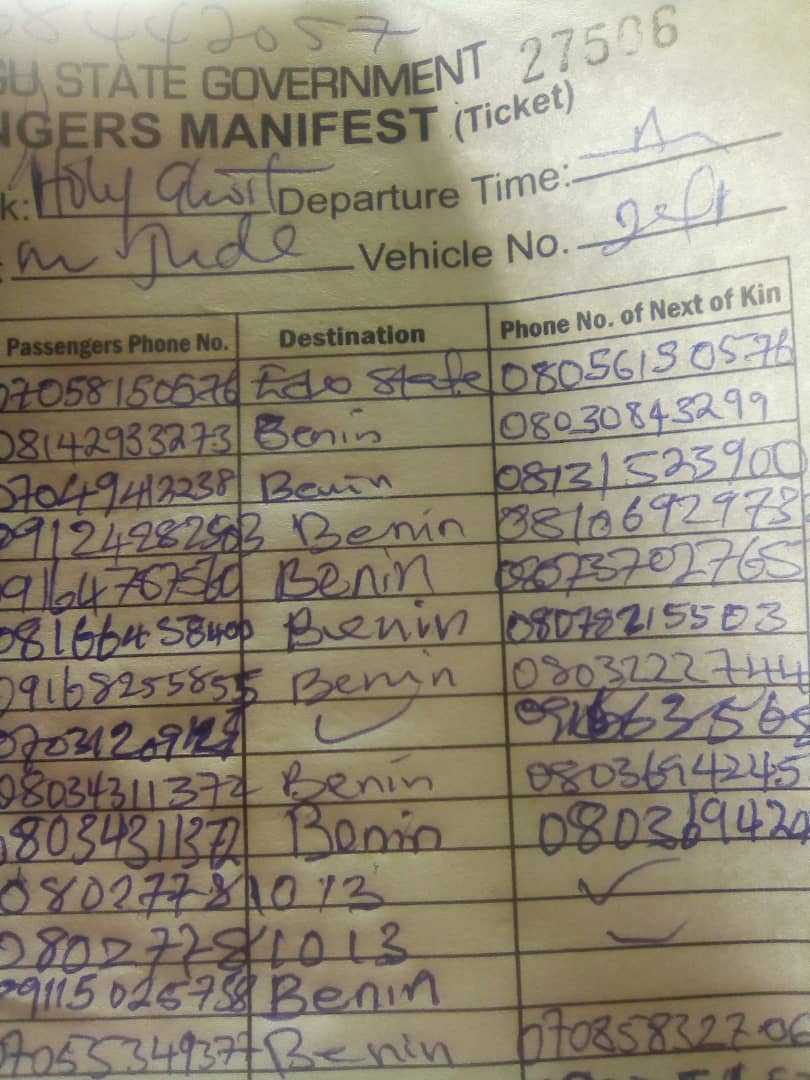 08442057
GU STATE GOVERNMENT 27506
NGERS MANIFEST (Ticket)
k: Holy Ghost Departure Time:
Jude Vehicle No.
Passengers Phone No. Destination Phone No. of Next of Kin
07058150576 Edo State 08056130576
08142933273 Benin 08030843299
07049412238 Benin 08131523900
Benin 0810692973
Benin 08073702765
08166458400 Benin 08078215503
09168255855 Benin 0803222744
✓
08034311372 Benin 0803694245
08034311372 Benin 080369420
08027781013 ✓
08027781013
09115025758 Benin
07055349377 Benin 07085832206